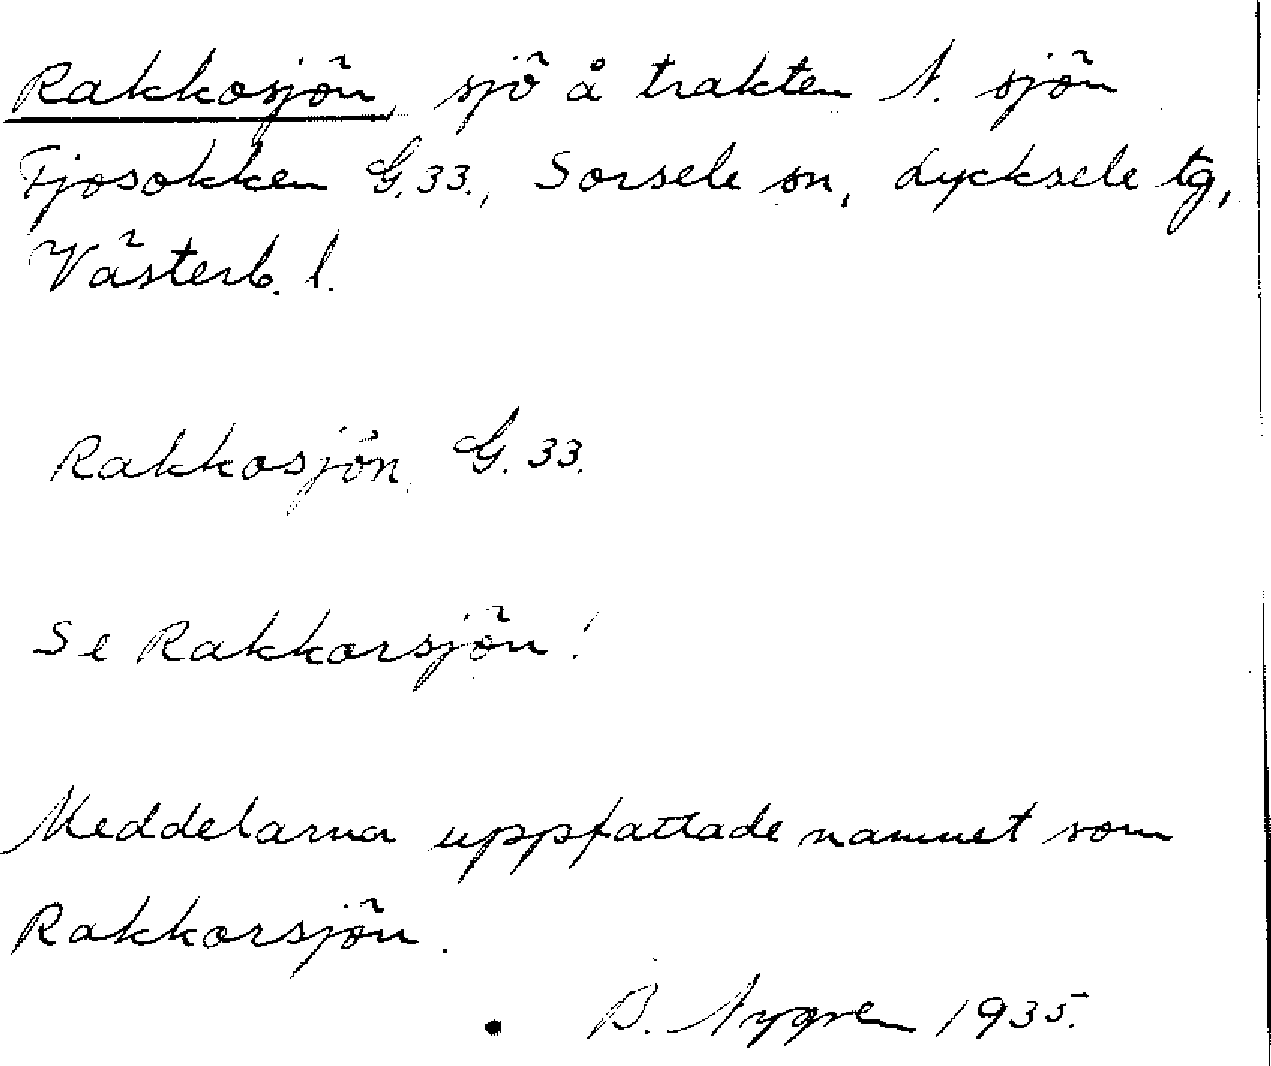 Rakkosjön, sjö å trakten N. sjön
Tjosokken G.33., Sorsele sn, Lycksele tg,
Västerb. l.
Rakkosjön, G.33.
Se Rakkorsjön!
Meddelarna uppfattade namnet som
Rakkorsjön.
B. Nygren 1935.